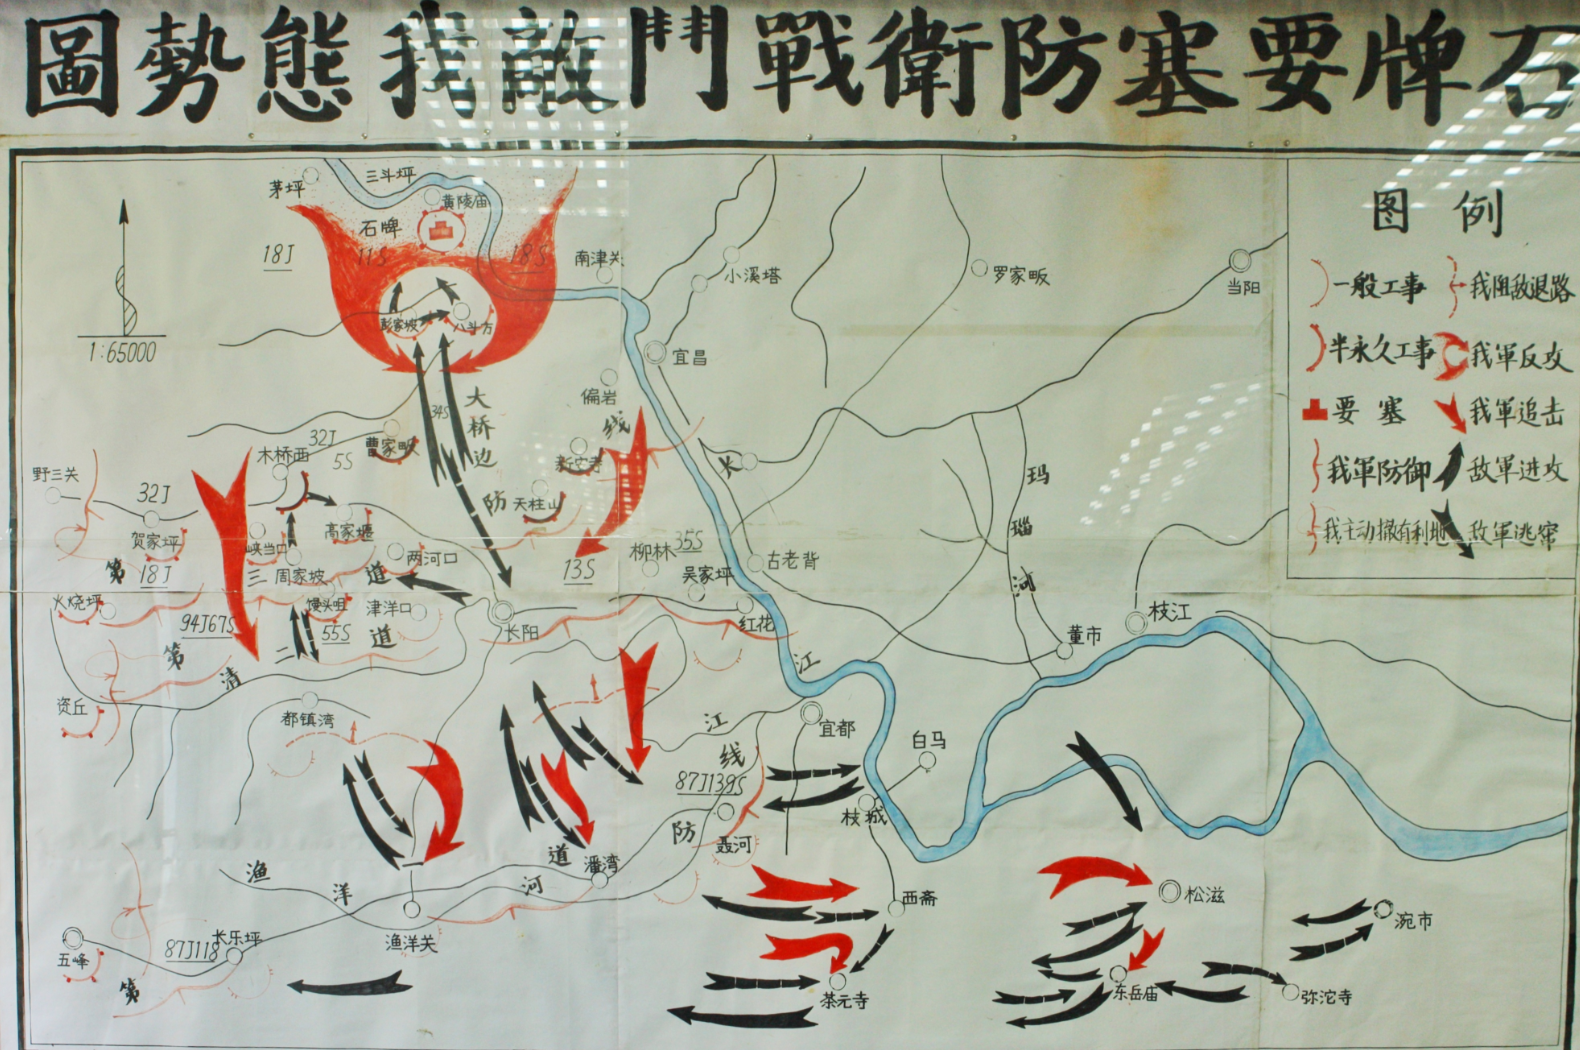 石牌要塞防衛戰鬥敵我態勢圖
茅坪
三斗坪
黄陵庙
石牌
18J
11S
18S
南津关
小溪塔
罗家畈
当阳
1:65000
彭家坡
八斗方
宜昌
偏岩
大桥边
34S
防
线
32J
5S
木桥西
曹家畈
野三关
32J
贺家坪
天柱山
长
玛瑙河
高家堰
峡当口
两河口
柳林
35S
古老背
第
18J
三
周家坡
道
13S
吴家坪
火烧坪
馒头咀
津洋口
94J67S
55S
道
长阳
红花
枝江
董市
第
二
清
江
资丘
都镇湾
江
宜都
线
白马
87J139S
枝城
防
聂河
道
潘湾
渔
洋
河
西斋
松滋
涴市
五峰
87J118
长乐坪
渔洋关
第
茶元寺
东岳庙
弥沱寺
图例
一般工事
我阻敌退路
半永久工事
我軍反攻
要塞
我軍追击
我軍防御
敌軍进攻
我主动撤有利地
敌軍逃窜